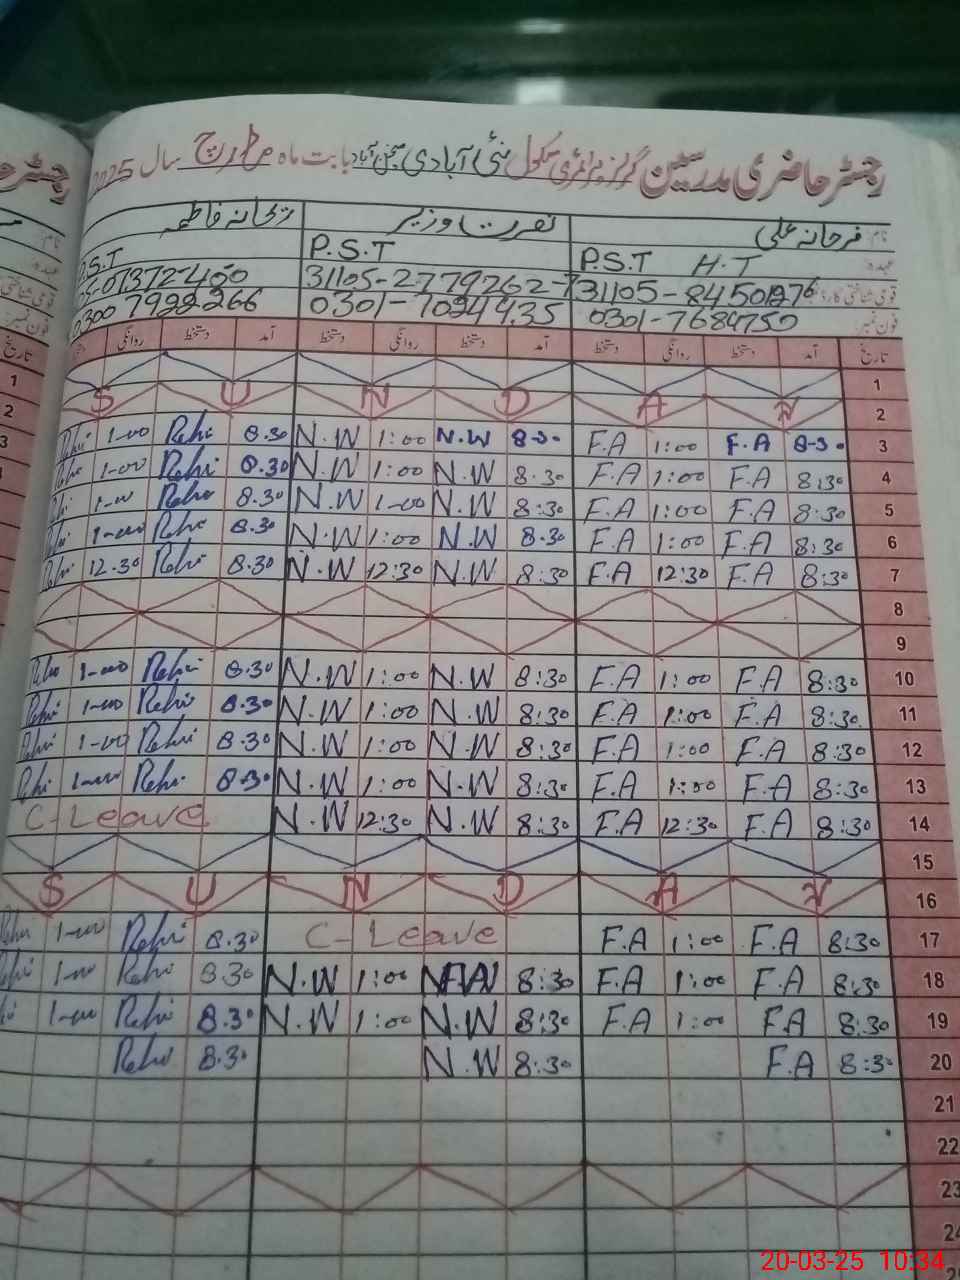 رجسٹر حاضری مدرسین گرلز پرائمری سکول نئی آبادی بابت ماہ مارچ سال 2025
نام: فرحانہ علی نصرت وزیر ریحانہ فاطمہ
عہدہ: P.S.T H.T P.S.T P.S.T
قومی شناختی کارڈ: 31105-2779262-7
فون نمبر: 0301-7684750 0301-7024435 0300 7922266
تاریخ آمد دستخط روانگی دستخط آمد دستخط روانگی دستخط آمد دستخط روانگی
1
S U N D A Y 2
Rehi 1-00 Rehi 8.30 N.W 1:00 N.W 8-30 F.A 1:00 F.A 8-30 3
1-00 Rehi 8.30 N.W 1:00 N.W 8:30 F.A 1:00 F.A 8:30 4
Rehi 1-00 Rehi 8.30 N.W 1-00 N.W 8:30 F.A 1:00 F.A 8:30 5
Rehi 1-00 Rehi 8.30 N.W 1:00 N.W 8.30 F.A 1:00 F.A 8:30 6
Rehi 12.30 Rehi 8.30 N.W 12:30 N.W 8:30 F.A 12:30 F.A 8:30 7
8
9
Rehi 1-00 Rehi 8.30 N.W 1:00 N.W 8:30 F.A 1:00 F.A 8:30 10
Rehi 1-00 Rehi 8.30 N.W 1:00 N.W 8:30 F.A 1:00 F.A 8:30 11
Rehi 1-00 Rehi 8.30 N.W 1:00 N.W 8:30 F.A 1:00 F.A 8:30 12
Rehi 1-00 Rehi 8.30 N.W 1:00 N.W 8:30 F.A 1:00 F.A 8:30 13
C-Leave N.W 12:30 N.W 8:30 F.A 12:30 F.A 8:30 14
15
S U N D A Y 16
Rehi 1-00 Rehi 8.30 C-Leave F.A 1:00 F.A 8:30 17
Rehi 1-00 Rehi 8.30 N.W 1:00 8:30 F.A 1:00 F.A 8:30 18
1-00 Rehi 8.30 N.W 1:00 N.W 8:30 F.A 1:00 F.A 8:30 19
Rehi 8.30 N.W 8:30 F.A 8:30 20
21
22
23
24
20-03-25 10:34